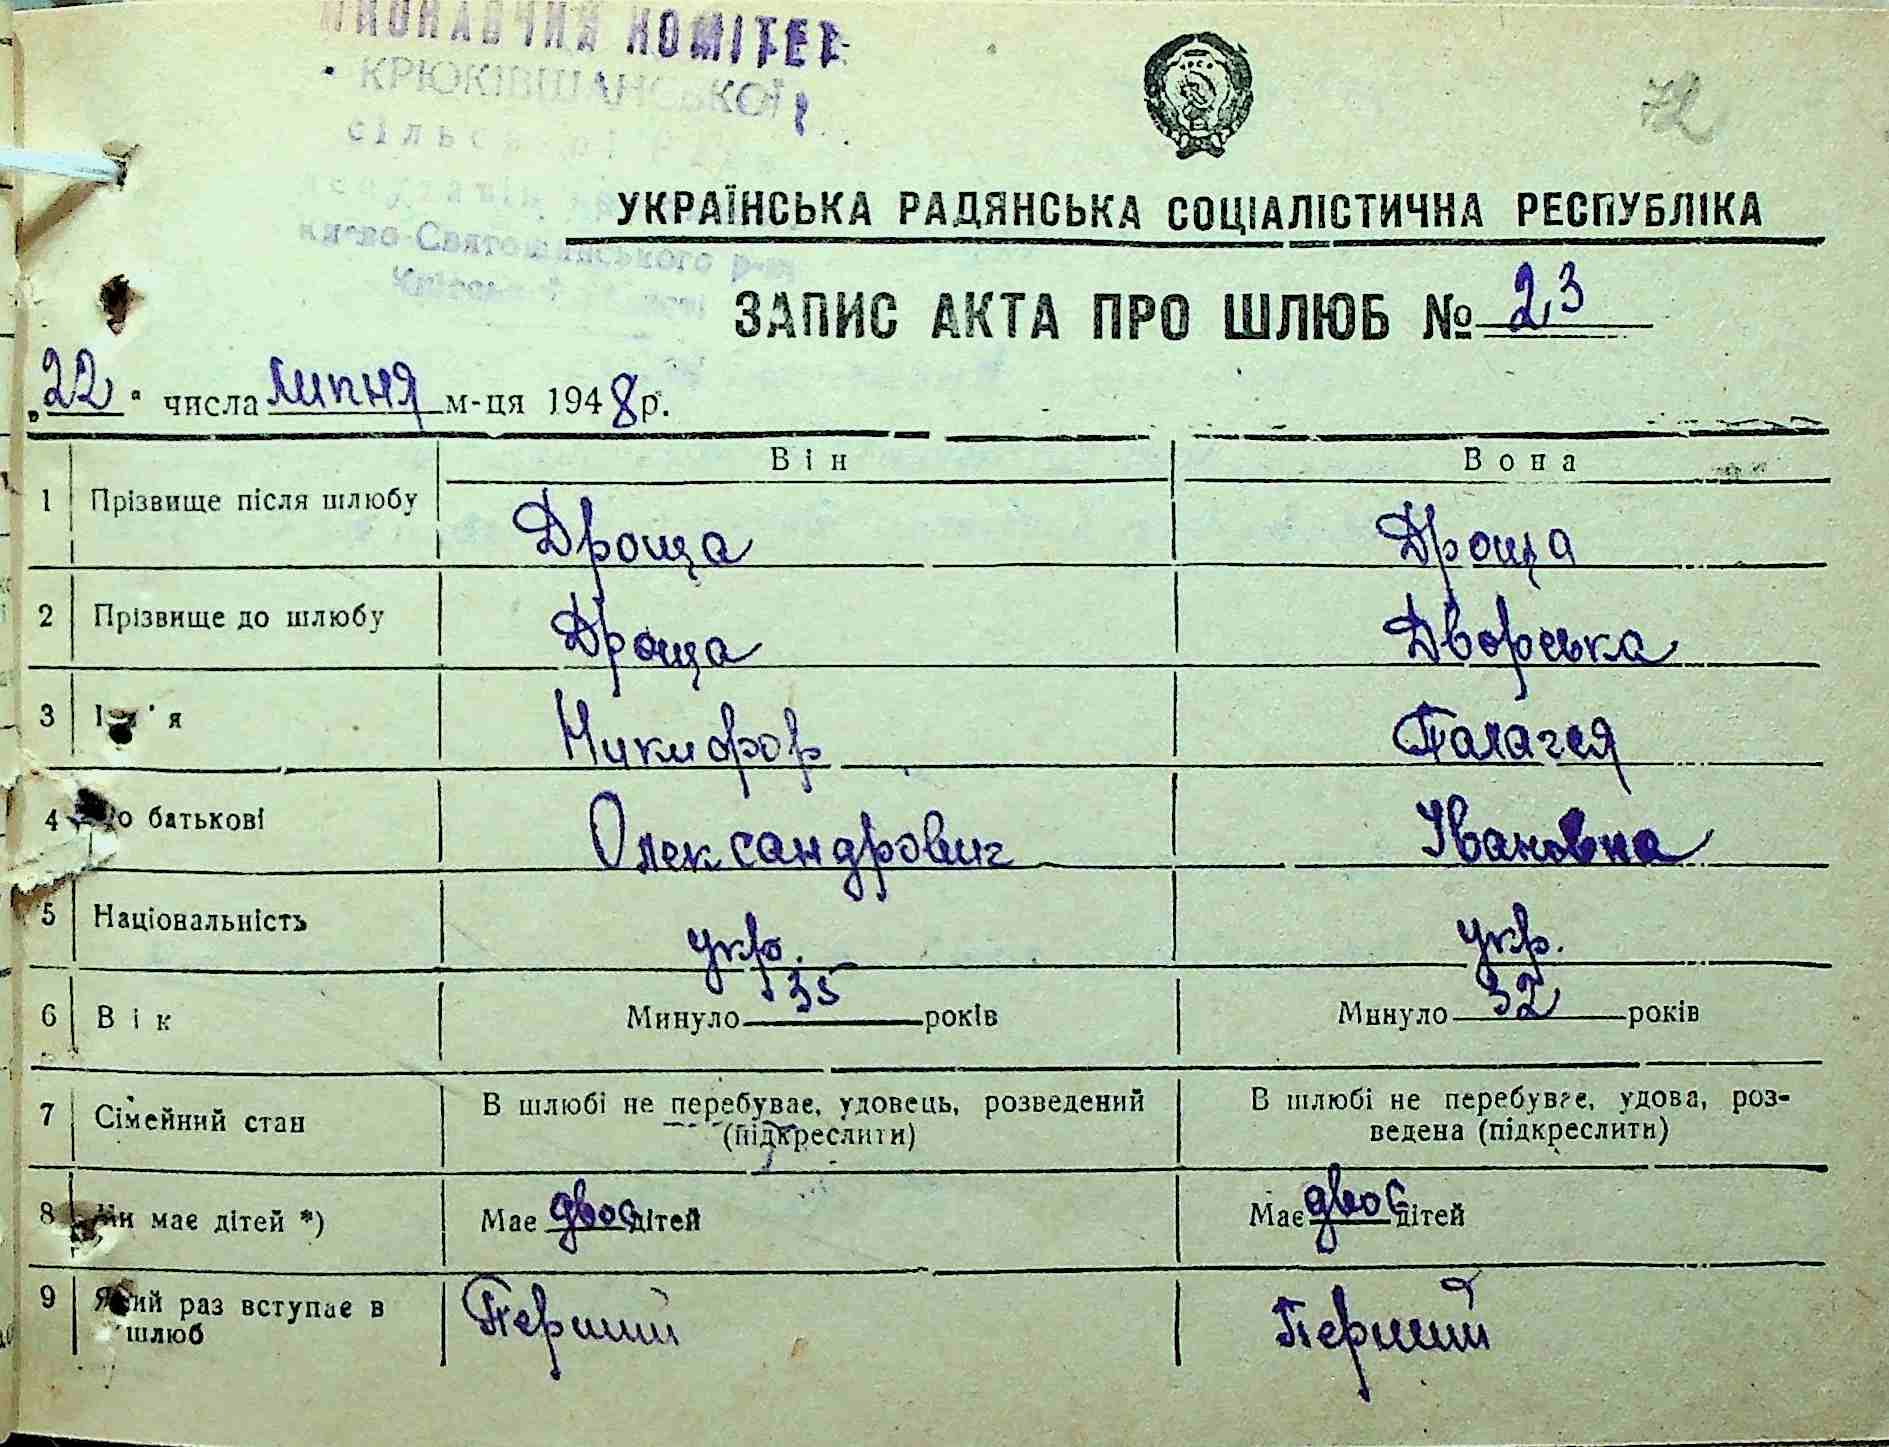 ВИКОНАВЧИЙ КОМІТЕТ
КРЮКІВЩАНСЬКОЇ
сільської
Києво-Святошинського р-ну
72
УКРАЇНСЬКА РАДЯНСЬКА СОЦІАЛІСТИЧНА РЕСПУБЛІКА
ЗАПИС АКТА ПРО ШЛЮБ № 23
„22“ числа липня м-ця 1948р.
Він Вона
1 Прізвище після шлюбу Дроща Дроща
2 Прізвище до шлюбу Дроща Дворська
3 Ім'я Никифор Палагея
4 По батькові Олександрович Івановна
5 Національність укр. укр.
6 Вік Минуло 35 років Минуло 32 років
7 Сімейний стан В шлюбі не перебуває, удовець, розведений (підкреслити) В шлюбі не перебуває, удова, роз-
ведена (підкреслити)
8 Чи має дітей *) Має двоє дітей Має двоє дітей
9 Який раз вступає в Перший Перший
шлюб